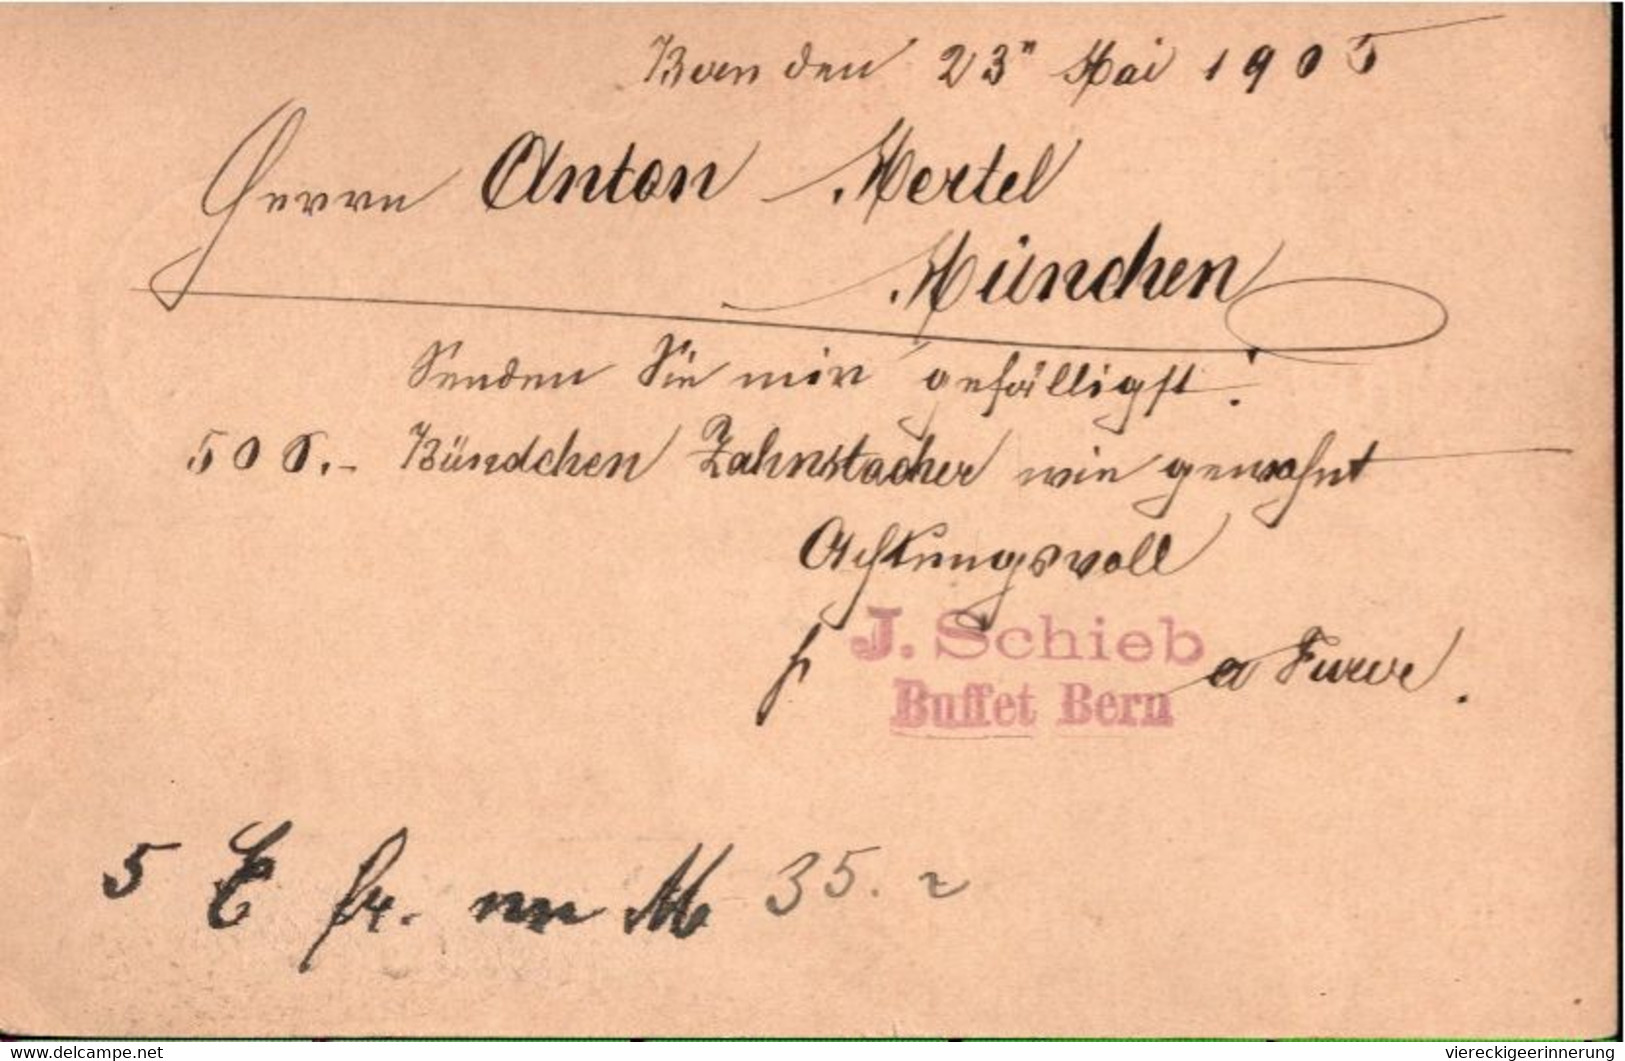 Bern den 23" Mai 1905
Herrn Anton Mertel
München
Senden Sie mir gefälligst:
500.- Bündchen Zahnstocher wie gewohnt
Achtungsvoll
J. Schieb
Buffet Bern
5 fr. M 35.
www.delcampe.net
viereckigeerinnerung